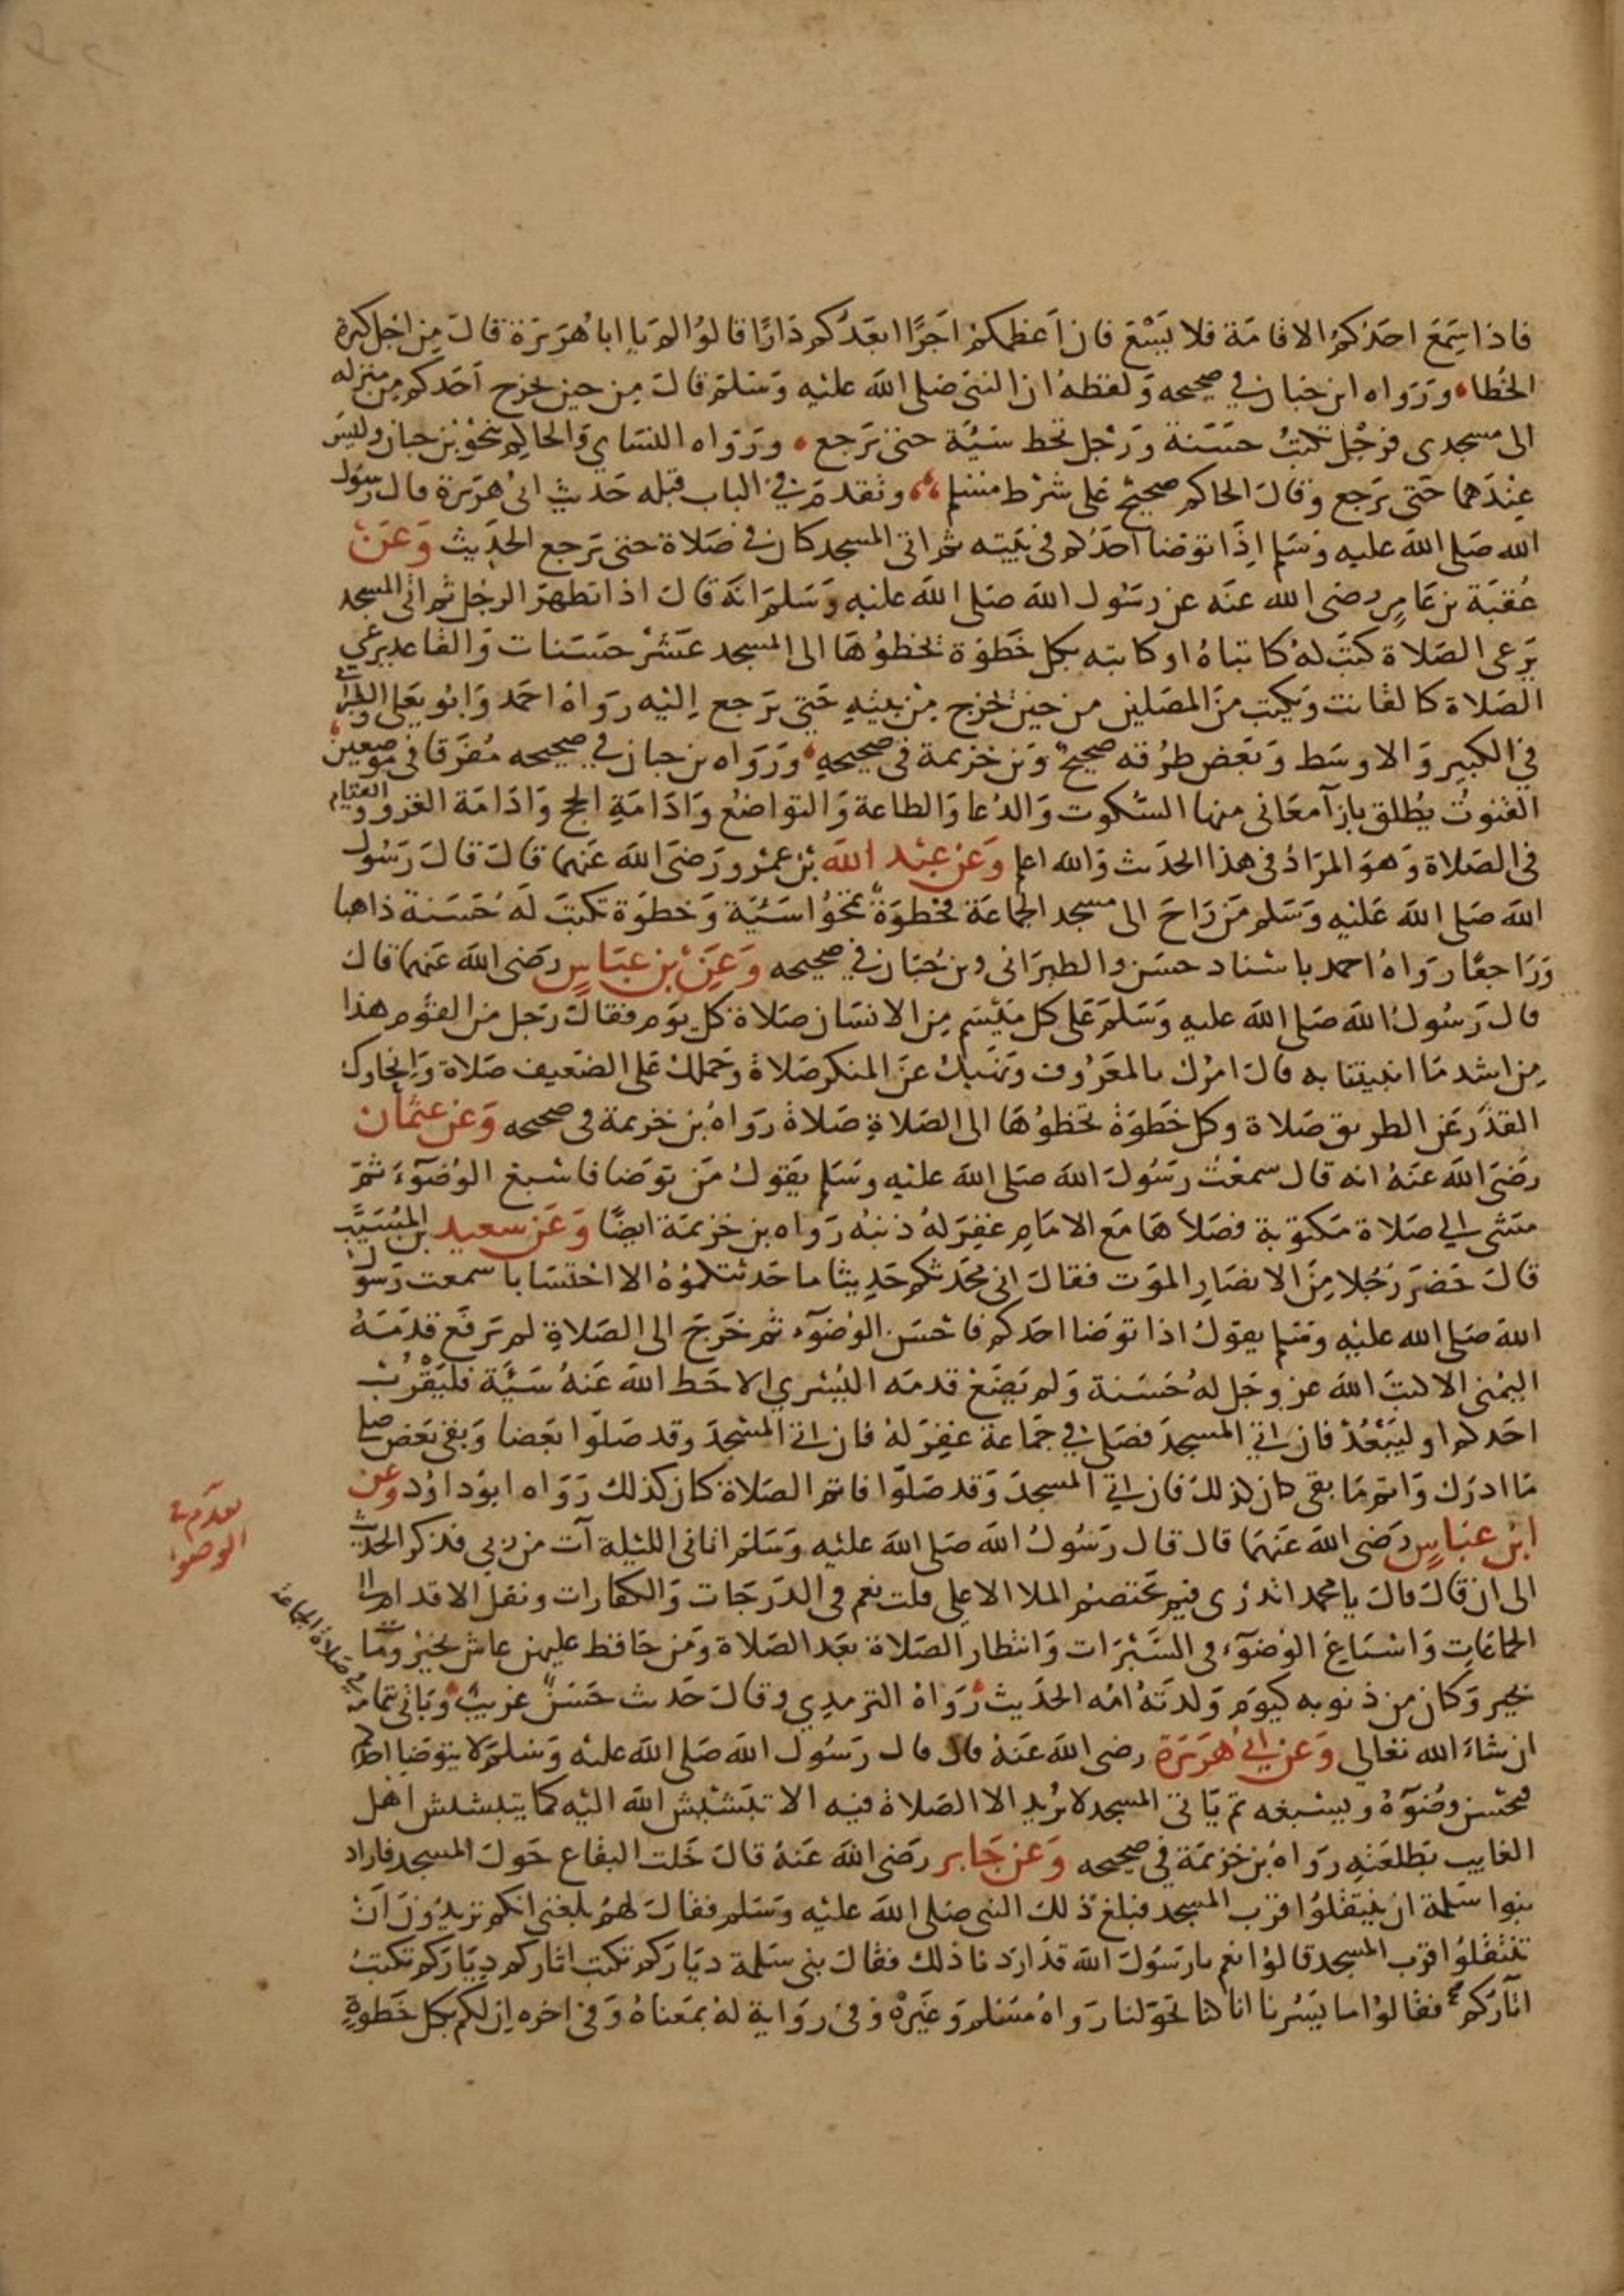 فاذا سمع احدكم الاقامة فلا يسع فان اعظمكم اجرا ابعدكم دارا قالوا لم يا ابا هريرة قال من اجل كثرة
الخطا ورواه ابن حبان في صحيحه ولفظه ان النبي صلى الله عليه وسلم قال من حين يخرج احدكم من منزله
الى مسجدى فرجل تكتب حسنة ورجل تحط سيئة حتى يرجع ورواه النساي والحاكم بنحو بن حبان وليس
عندهما حتى يرجع وقال الحاكم صحيح على شرط مسلم وتقدم في الباب قبله حديث ابى هريرة قال رسول
الله صلى الله عليه وسلم اذا توضا احدكم فى بيته ثم اتى المسجد كان في صلاة حتى يرجع الحديث وعن
عقبة بن عامر رضى الله عنه عن رسول الله صلى الله عليه وسلم انه قال اذا تطهر الرجل ثم اتى المسجد
يرعى الصلاة كتب له كاتباه او كاتبه بكل خطوة يخطوها الى المسجد عشر حسنات والقاعد يرعى
الصلاة كالقانت ويكتب من المصلين من حين يخرج من بيته حتى يرجع اليه رواه احمد وابو يعلى والطبراني
في الكبير والاوسط وبعض طرقه صحيح وبن خزيمة فى صحيحه ورواه بن حبان في صحيحه مفرقا في موضعين
القنوت يطلق بازآ معانى منها السكوت والدعا والطاعة والتواضع وادامة الحج وادامة الغزو والقيام
فى الصلاة وهو المراد فى هذا الحديث والله اعلم وعن عبد الله بن عمرو رضى الله عنهما قال قال رسول
الله صلى الله عليه وسلم من راح الى مسجد الجماعة فخطوة تمحوا سيئة وخطوة تكتب له حسنة ذاهبا
وراجعا رواه احمد باسناد حسن والطبرانى وبن حبان في صحيحه وعن بن عباس رضى الله عنهما قال
قال رسول الله صلى الله عليه وسلم على كل ميسم من الانسان صلاة كل يوم فقال رجل من القوم هذا
من اشد ما انبيتنا به قال امرك بالمعروف ونهيك عن المنكر صلاة وحملك على الضعيف صلاة وانحاوك
القذر عن الطريق صلاة وكل خطوة تخطوها الى الصلاة صلاة رواه بن خزيمة فى صحيحه وعن عثمان
رضى الله عنه انه قال سمعت رسول الله صلى الله عليه وسلم يقول من توضا فاسبغ الوضوء ثم
مشى الى صلاة مكتوبة فصلاها مع الامام غفر له ذنبه رواه بن خزيمة ايضا وعن سعيد بن المسيب
قال حضر رجلا من الانصار الموت فقال اني محدثكم حديثا ما حدثتكموه الا احتسابا سمعت رسول
الله صلى الله عليه وسلم يقول اذا توضا احدكم فاحسن الوضوء ثم خرج الى الصلاة لم يرفع قدمه
اليمنى الا كتب الله عز وجل له حسنة ولم يضع قدمه اليسرى الا حط الله عنه سيئة فليقرب
احدكم او ليبعد فان اتي المسجد فصلى في جماعة غفر له فان اتى المسجد وقد صلوا بعضا وبقى بعض صلى
ما ادرك واتم ما بقى كان كذلك فان اتي المسجد وقد صلوا فاتم الصلاة كان كذلك رواه ابو داود وعن
ابن عباس رضى الله عنهما قال قال رسول الله صلى الله عليه وسلم اتانى الليلة آت من ربي فذكر الحديث
الى ان قال قال يا محمد اتدرى فيم يختصم الملا الاعلى قلت نعم فى الدرجات والكفارات ونقل الاقدام الى
الجماعات واسباغ الوضوء فى السبرات وانتظار الصلاة بعد الصلاة ومن حافظ عليهن عاش بخير ومات
بخير وكان من ذنوبه كيوم ولدته امه الحديث رواه الترمدي وقال حديث حسن غريب وياتى بتمامه
ان شاء الله تعالى وعن ابي هريرة رضى الله عنه قال قال رسول الله صلى الله عليه وسلم لا يتوضا احدكم
فيحسن وضوءه ويسبغه ثم ياتى المسجد لا يريد الا الصلاة فيه الا تبشبش الله اليه كما يتبشبش اهل
الغايب بطلعته رواه بن خزيمة في صحيحه وعن جابر رضى الله عنه قال خلت البقاع حول المسجد فاراد
بنوا سلمة ان ينتقلوا قرب المسجد فبلغ ذلك النبى صلى الله عليه وسلم فقال لهم بلغنى انكم تريدون ان
تنتقلوا قرب المسجد قالوا نعم يا رسول الله قد اردنا ذلك فقال بنى سلمة دياركم تكتب اثاركم دياركم تكتب
اثاركم فقالوا ما يسرنا انا كنا تحولنا رواه مسلم وغيره وفى رواية له بمعناه وفى اخره ان لكم بكل خطوة
تقدم في
الوضوء
في صلاة الجماعة